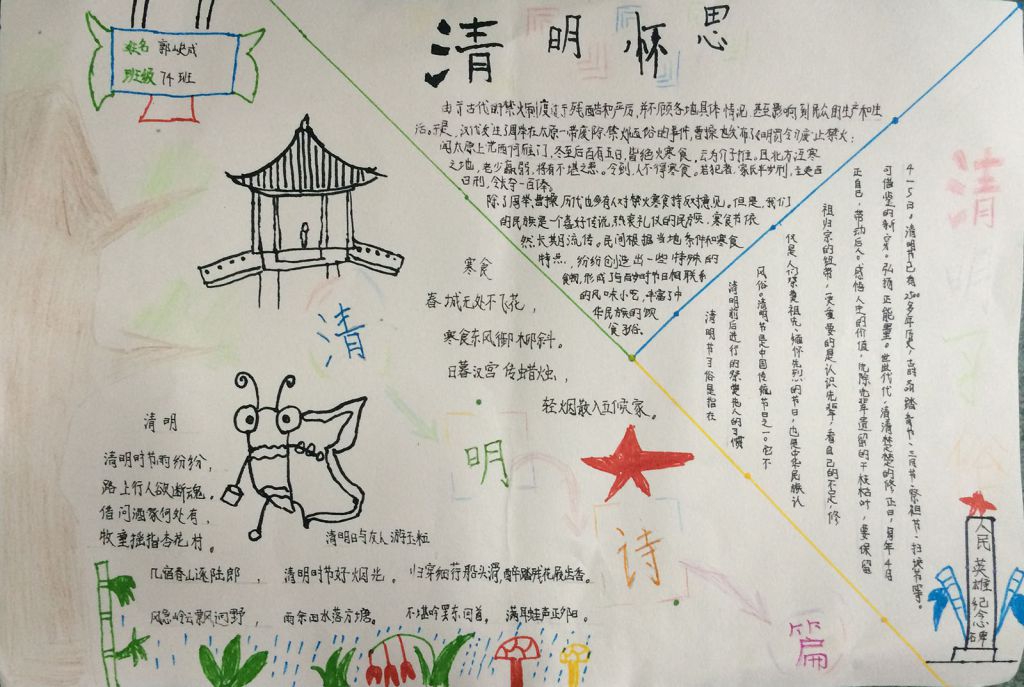 姓名 郭峻成
班级 74班
清明怀思
由于古代的禁火制度过于残酷和严厉,并不顾各地具体情况,甚至影响到民众的生产和生
活。于是,汉代发生了周举在太原一带废除禁火陋俗的事件,曹操也发布了《明罚令》废止禁火:
闻太原上党西河雁门,冬至后百有五日,皆绝火寒食,云为介子推。且北方沍寒
之地,老少羸弱,将有不堪之患。令到,人不得寒食。若犯者,家长半岁刑,主吏百
日刑,令长夺一月俸。
除了周举曹操,历代也多有人对禁火寒食持反对意见。但是,我们
的民族是一个喜好传说、热衷礼仪的民族,寒食节依
然长期流传。民间根据当地条件和寒食
特点,纷纷创造出一些特殊的
食物,形成了与时节日相联系
的风味小吃,丰富了中
华民族的饮
食习俗。
寒食
春城无处不飞花,
寒食东风御柳斜。
日暮汉宫传蜡烛,
轻烟散入五侯家。
清
明
诗
篇
清明
清明时节雨纷纷,
路上行人欲断魂。
借问酒家何处有,
牧童摇指杏花村。
清明日与友人游玉粒
几宿春山逐陆郎,清明时节好烟光。归穿细荇船头滑,醉踏残花屐齿香。
风急岭云飘迥野,雨余田水落方塘。不堪吟罢东回首,满耳蛙声正夕阳。
清明习俗
清明节习俗是指在
清明前后进行的祭奠先人的习惯
风俗。清明节是中国传统节日之一。它不
仅是人们祭奠祖先、缅怀先烈的节日,也是中华民族认
祖归宗的纽带,更重要的是认识先辈,看自己的不足,修
正自己,带动后人。感悟人生的价值,优除先辈遗留的干枝枯叶,要保留
可借鉴的新芽。弘扬正能量。世世代代,清清楚楚的修正日,每年4月
4-5日。清明节已有2500多年历史,古时又称踏青节、三月节、祭祖节、扫坟节等。
人民英雄纪念碑